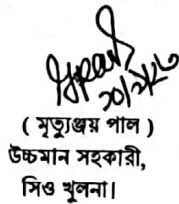 ( মৃত্যুঞ্জয় পাল )
উচ্চমান সহকারী,
সিও খুলনা।